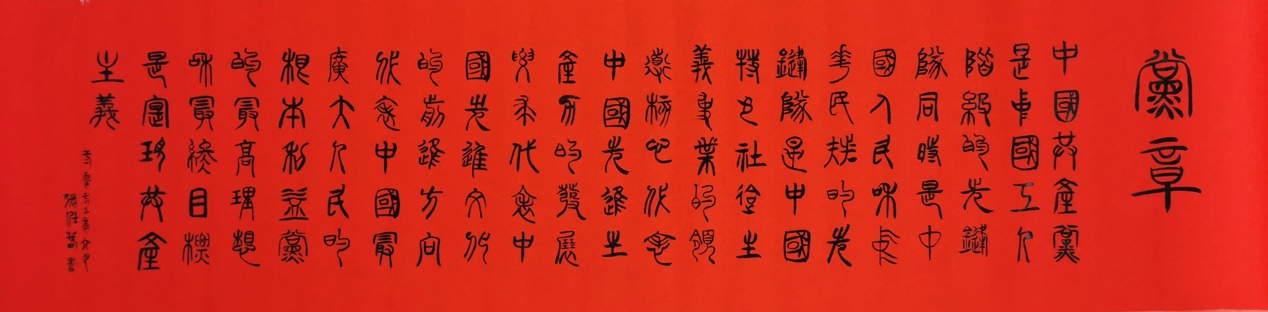 黨章
中國共產黨
是中國工人
階級的先鋒
隊同時是中
國人民和中
華民族的先
鋒隊是中國
特色社會主
義事業的領
導核心代表
中國先進生
產力的發展
要求代表中
國先進文化
的前進方向
代表中國最
廣大人民的
根本利益黨
的最高理想
和最終目標
是實現共產
主義